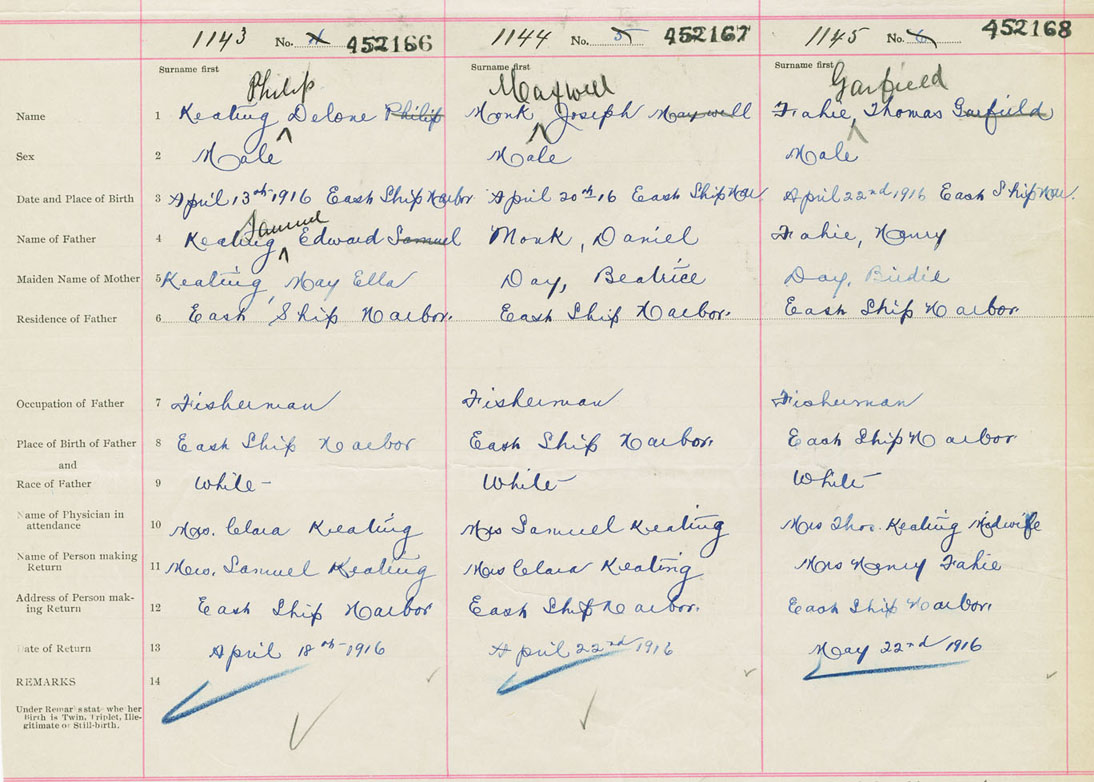 1143 No. 4 452166 1144 No. 5 452167 1145 No. 6 452168
Surname first Surname first Surname first
Philip Maxwell Garfield
Name 1 Keating Delone Philip Monk Joseph Maxwell Fahie, Thomas Garfield
Sex 2 Male Male Male
Date and Place of Birth 3 April 13th 1916 East Ship Harbor April 20th 16 East Ship Har April 22nd 1916 East Ship Har.
Samuel
Name of Father 4 Keating Edward Samuel Monk, Daniel Fahie, Henry
Maiden Name of Mother 5 Keating, May Ella Day, Beatrice Day, Birdie
Residence of Father 6 East Ship Harbor. East Ship Harbor. East Ship Harbor.
Occupation of Father 7 Fisherman Fisherman Fisherman
Place of Birth of Father 8 East Ship Harbor East Ship Harbor. East Ship Harbor
and
Race of Father 9 White - White White
Name of Physician in attendance 10 Mrs. Clara Keating Mrs Samuel Keating Mrs Thos. Keating Midwife
Name of Person making Return 11 Mrs. Samuel Keating Mrs Clara Keating Mrs Henry Fahie
Address of Person mak- ing Return 12 East Ship Harbor East Ship Harbor. East Ship Harbor.
Date of Return 13 April 18th 1916 April 22nd 1916 May 22nd 1916
REMARKS 14
Under Remarks state whether
Birth is Twin, Triplet, Ille-
gitimate or Still-birth.